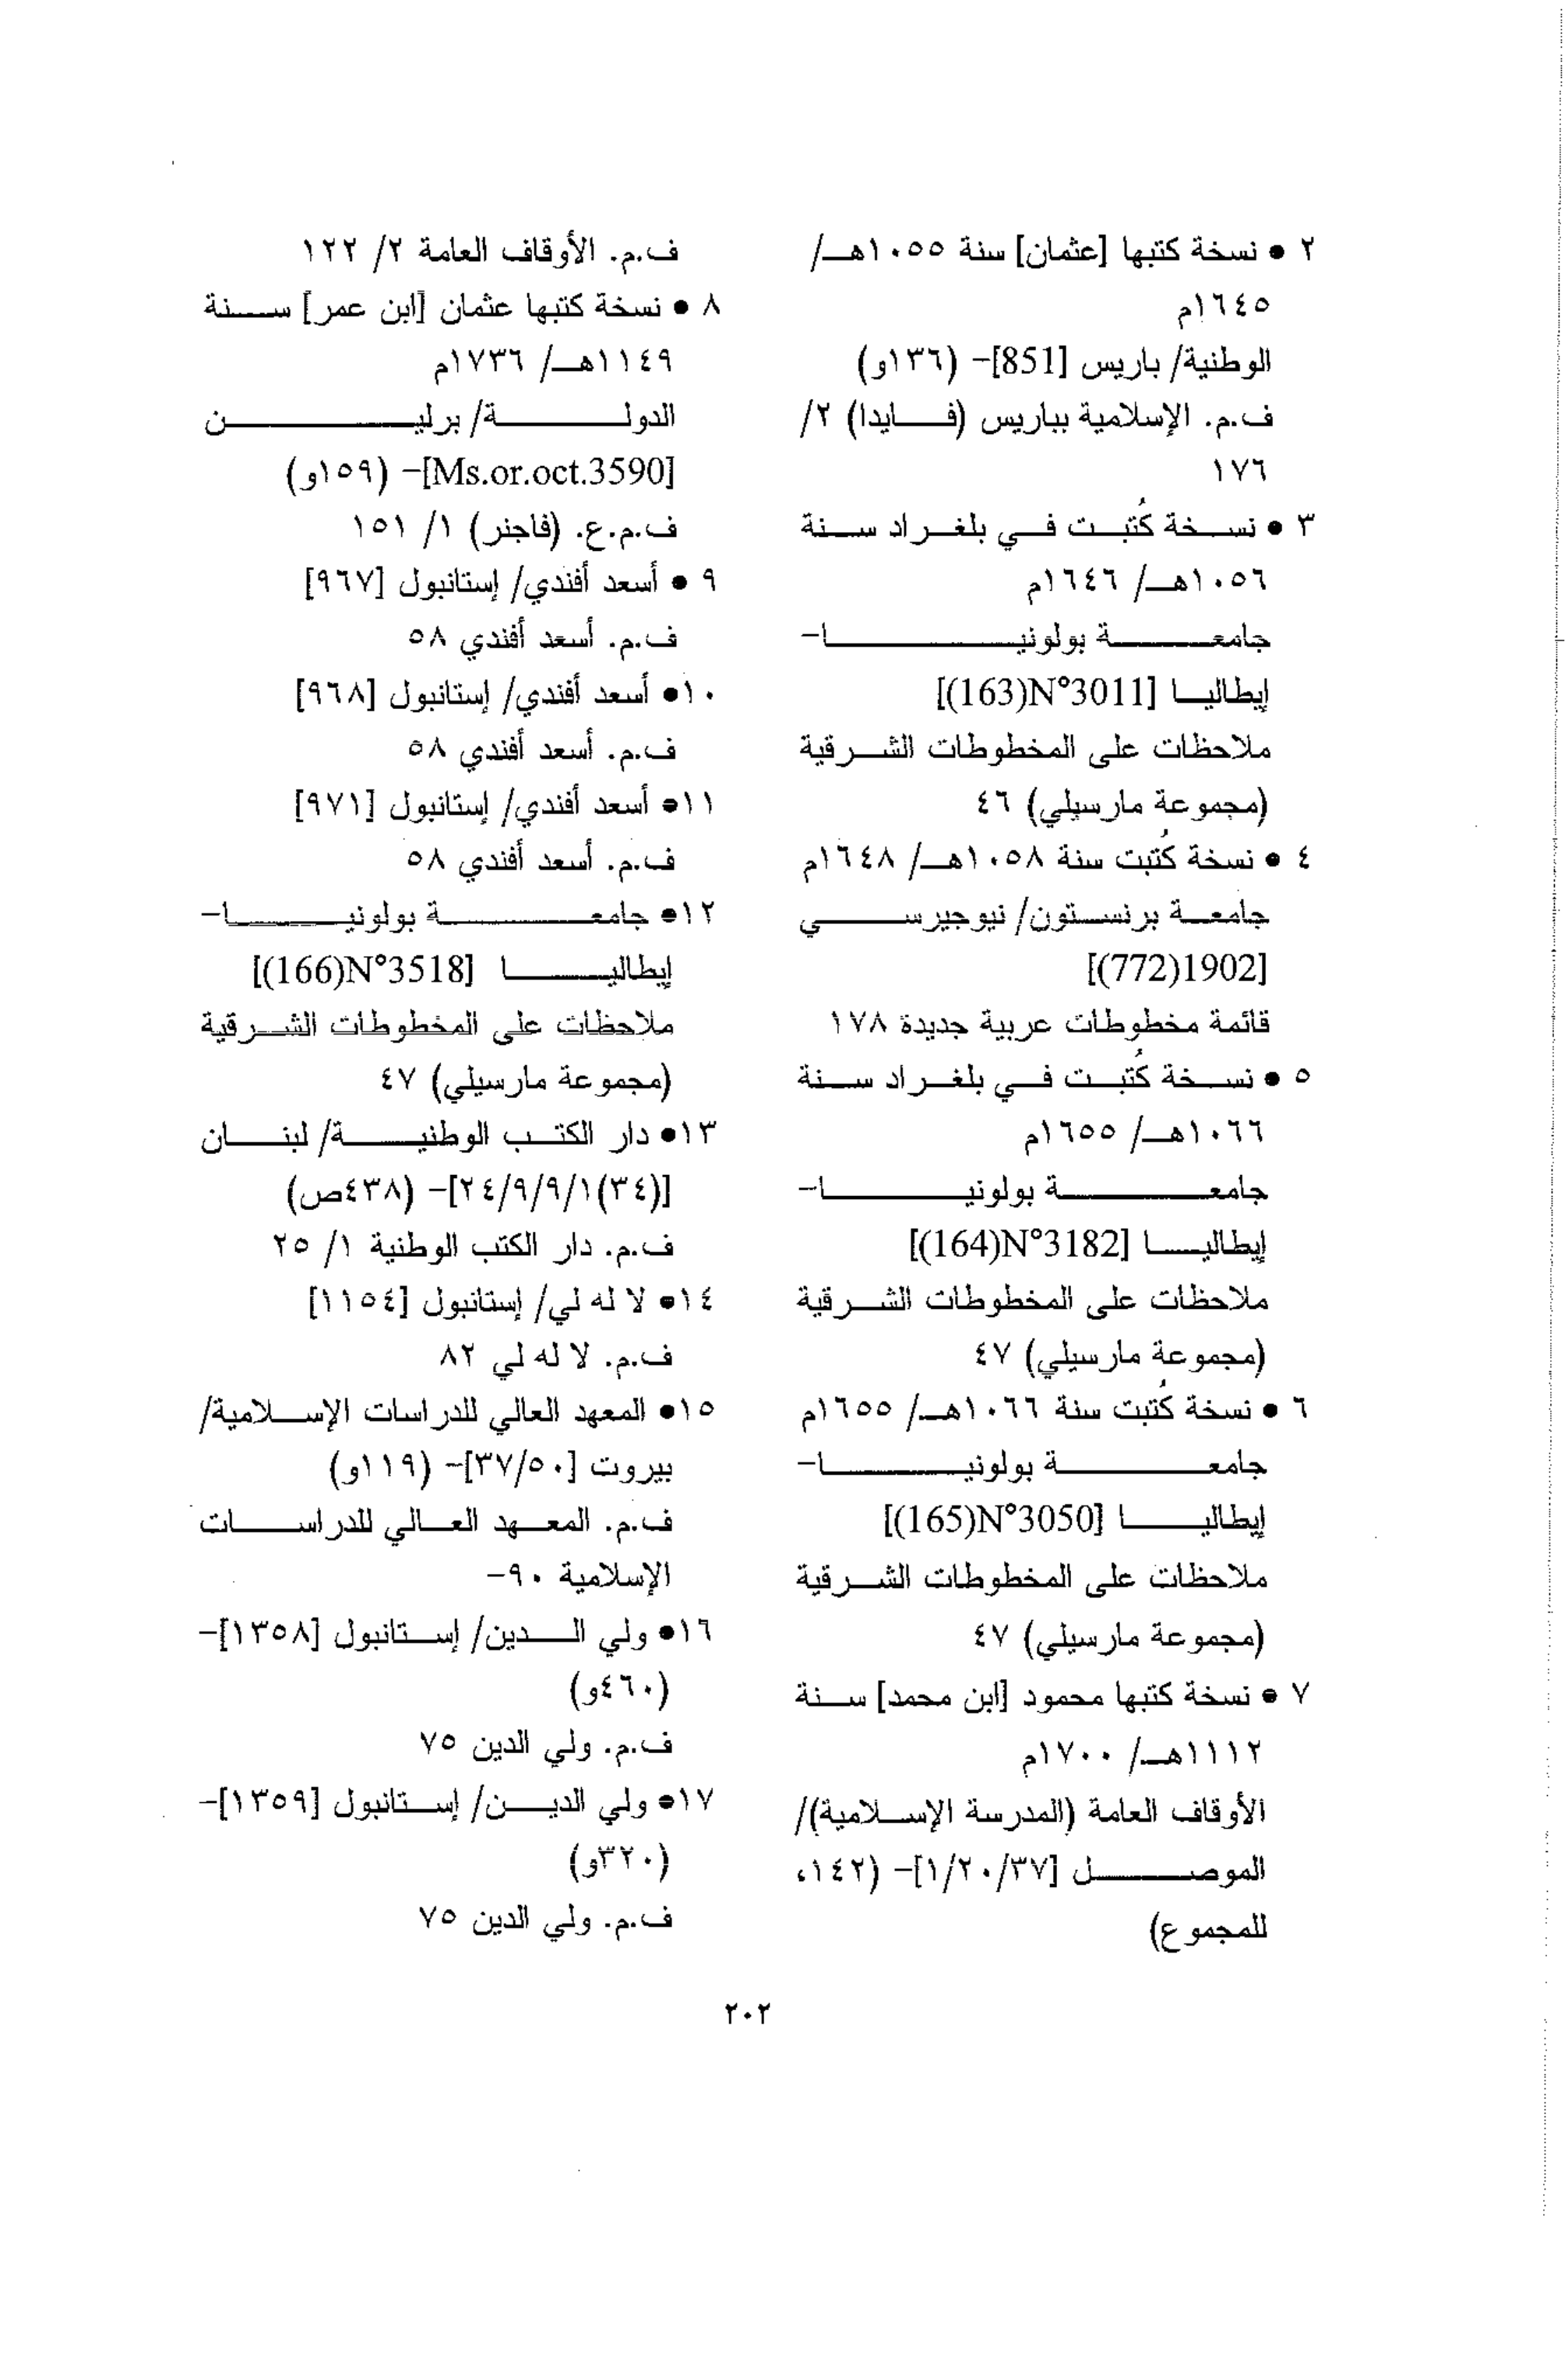 ٢ • نسخة كتبها [عثمان] سنة ١٠٥٥هـ/
١٦٤٥م
الوطنية/ باريس [851]- (١٣٦و)
ف.م. الإسلامية بباريس (فايدا) ٢/
١٧٦
٣ • نسخة كُتبت في بلغراد سنة
١٠٥٦هـ/ ١٦٤٦م
جامعة بولونيا-
إيطاليا [3011°N(163)]
ملاحظات على المخطوطات الشرقية
(مجموعة مارسيلي) ٤٦
٤ • نسخة كُتبت سنة ١٠٥٨هـ/ ١٦٤٨م
جامعة برنستون/ نيوجيرسي
[1902(772)]
قائمة مخطوطات عربية جديدة ١٧٨
٥ • نسخة كُتبت في بلغراد سنة
١٠٦٦هـ/ ١٦٥٥م
جامعة بولونيا-
إيطاليا [3182°N(164)]
ملاحظات على المخطوطات الشرقية
(مجموعة مارسيلي) ٤٧
٦ • نسخة كُتبت سنة ١٠٦٦هـ/ ١٦٥٥م
جامعة بولونيا-
إيطاليا [3050°N(165)]
ملاحظات على المخطوطات الشرقية
(مجموعة مارسيلي) ٤٧
٧ • نسخة كتبها محمود [ابن محمد] سنة
١١١٢هـ/ ١٧٠٠م
الأوقاف العامة (المدرسة الإسلامية)/
الموصل [١/٢٠/٣٧]- (١٤٢،
للمجموع)
ف.م. الأوقاف العامة ٢/ ١٢٢
٨ • نسخة كتبها عثمان [ابن عمر] سنة
١١٤٩هـ/ ١٧٣٦م
الدولة/ برلين
[Ms.or.oct.3590]- (١٥٩و)
ف.م.ع. (فاجنر) ١/ ١٥١
٩ • أسعد أفندي/ إستانبول [٩٦٧]
ف.م. أسعد أفندي ٥٨
١٠• أسعد أفندي/ إستانبول [٩٦٨]
ف.م. أسعد أفندي ٥٨
١١• أسعد أفندي/ إستانبول [٩٧١]
ف.م. أسعد أفندي ٥٨
١٢• جامعة بولونيا-
إيطاليا [3518°N(166)]
ملاحظات على المخطوطات الشرقية
(مجموعة مارسيلي) ٤٧
١٣• دار الكتب الوطنية/ لبنان
[(٣٤)٢٤/٩/٩/١]- (٤٣٨ص)
ف.م. دار الكتب الوطنية ١/ ٢٥
١٤• لا له لي/ إستانبول [١١٥٤]
ف.م. لا له لي ٨٢
١٥• المعهد العالي للدراسات الإسلامية/
بيروت [٣٧/٥٠]- (١١٩و)
ف.م. المعهد العالي للدراسات
الإسلامية ٩٠-
١٦• ولي الدين/ إستانبول [١٣٥٨]-
(٤٦٠و)
ف.م. ولي الدين ٧٥
١٧• ولي الدين/ إستانبول [١٣٥٩]-
(٣٢٠و)
ف.م. ولي الدين ٧٥
٢٠٢